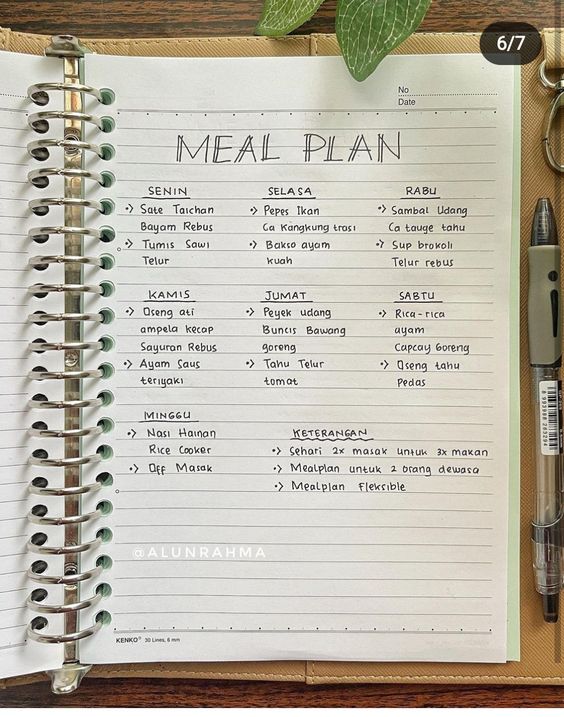 6/7
No
Date
MEAL PLAN
SENIN
•> Sate Taichan
Bayam Rebus
•> Tumis Sawi
Telur
SELASA
•> Pepes Ikan
Ca Kangkung trasi
•> Bakso ayam
kuah
RABU
•> Sambal Udang
Ca tauge tahu
•> Sup brokoli
Telur rebus
KAMIS
•> Oseng ati
ampela kecap
Sayuran Rebus
•> Ayam Saus
teriyaki
JUMAT
•> Peyek udang
Buncis Bawang
goreng
•> Tahu Telur
tomat
SABTU
•> Rica-rica
ayam
Capcay Goreng
•> Oseng tahu
Pedas
MINGGU
•> Nasi Hainan
Rice Cooker
•> Off Masak
KETERANGAN
•> Sehari 2x masak untuk 3x makan
•> Mealplan untuk 2 orang dewasa
•> Mealplan Fleksible
@ALUNRAHMA
KENKO® 30 Lines, 6 mm